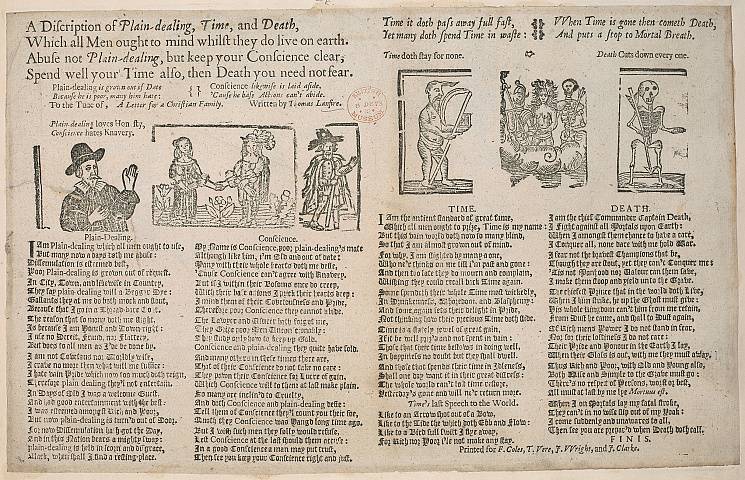 A Diſcription of Plain-dealing, Time, and Death,
Which all Men ought to mind whilſt they do live on earth.
Abuſe not Plain-dealing, but keep your Conſcience clear,
Spend well your Time alſo, then Death you need not fear.
Plain-dealing is grown out of Date
Becauſe he is poor, many him hate:
Conſcience likewiſe is laid aſide,
'Cauſe he baſe Actions can't abide.
To the Tune of, A Letter for a Chriſtian Family. Written by Thomas Lanfire.
Plain-dealing loves Honeſty,
Conſcience hates Knavery.
Plain-Dealing.
I Am Plain-dealing which all men ought to uſe,
But many now a days doth me abuſe:
Diſſemulation is eſteemed beſt,
Poor Plain-dealing is grown out of requeſt.
In City, Town, and likewiſe in Country,
They ſay plain-dealing will a Beggar Dye:
Gallants they at me do both mock and flout,
Becauſe that I go in a Thread-bare Coat.
The reaſon that ſo many doth me ſlight,
Is becauſe I am Honeſt and Down-right:
I uſe no Deceit, Fraud, nor Flattery,
But do to all men as I'de be done by.
I am not Covetous nor Worldly wiſe,
I crave no more then what will me ſuffice:
I hate vain Pride which now too much doth reign,
Therefore plain dealing they'l not entertain.
In Days of Old I was a welcome Gueſt,
And had good entertainment with the beſt:
I was eſteemed amongſt Rich and Poor,
But now plain-dealing is turn'd out of Door.
For now Diſſemulation hath got the Day,
And in this Nation bears a mighty ſway:
Plain-dealing is held in ſcorn and diſgrace,
Alack, when ſhall I find a reſting-place.
Conſcience.
My Name is Conſcience, poor plain-dealing's mate
Although like him, I'm Old and out of date:
Many with their whole hearts doth me deſpiſe,
'Cauſe Conſcience can't agree with Knavery.
But if I within their Boſoms once do creep,
With their baſe actions I prick their hearts deep:
I mind them of their Covetouſneſs and Pride,
Therefore poor Conſcience they cannot abide.
The Lawyer and Uſurer hath forgot me,
They Griſe poor Men Unconſcionably:
They ſtudy only how to heap up Gold.
Conſcience and Plain-dealing they quite have ſold.
And many others in theſe times there are,
That of Conſcience do not take no care:
They pawn their Conſcience for Lucre of gain,
Which Conſcience will to them at laſt make plain.
So many are inclin'd to Cruelty,
And doth Conſcience and plain-dealing deſie:
Tell them of Conſcience they'l count you their foe,
Much they Conſcience was Hang'd long time ago.
But I wiſh ſuch men they folly would refuſe,
Leſt Conſcience at the laſt ſhould them accuſe:
In a good Conſcience a man may put truſt,
Then ſee you keep your Conſcience right and juſt.
Time it doth paſs away full faſt,
Yet many doth ſpend Time in waſte:
When Time is gone then cometh Death,
And puts a ſtop to Mortal Breath.
Time doth ſtay for none.
Death Cuts down every one.
TIME.
I Am the antient ſtandard of great fame,
Which all men ought to prize, Time is my name:
But this vain world doth now ſo many blind,
So that I am almoſt grown out of mind.
For why, I am ſlighted by many a one,
Who ne're thinks on me till I'm paſt and gone:
And then too late they do mourn and complain,
Wiſhing they could recall back Time again.
Some ſpendeth their whole Time moſt wickedly,
In Drunkenneſs, Whoredom, and Blaſphemy:
And ſome again ſets their delight in Pride,
Not thinking how their precious Time doth ſlide.
Time is a ſtately jewel of great gain,
If it be well priz'd and not ſpent in vain:
Thoſe that ſpend their Time beſtows in doing well,
In happineſs no doubt but they ſhall dwell.
And thoſe that ſpends their time in Idleneſs,
Shall one day want it in their great diſtreſs:
The whole world can't loſt time reſtore,
Yeſterday's gone and will ne'r return more.
Time's laſt Speech to the World.
Like to an Arrow ſhot out of a Bow,
Like to the Tide the which doth Ebb and Flow:
Like to a Bird full ſwift I flye away,
For Rich nor Poor I'le not make any ſtay.
DEATH.
I am the chief Commander Captain Death,
I Fight againſt all Mortals upon Earth:
When I amongſt them chance to have a care,
I Conquer all, none dare with me hold War.
I fear not the braveſt Champions that be,
Though they are ſtout, yet they can't Conquer me:
'Tis not Hand nor Valour can them ſave,
I make them ſtoop and yield unto the Grave.
The chiefeſt Prince that in the world doth Live,
When I him ſtrike, he up the Ghoſt muſt give:
His whole Kingdom can't him from me retain,
From Duſt he came, and ſhall to Duſt again.
Of Rich mens Power I do not ſtand in fear,
Nor for their loftineſs I do not care:
Their Pride and Honour in the Earth I lay,
When their Glaſs is out, with me they muſt away.
Thus Rich and Poor, with Old and Young alſo,
Both Wiſe and Simple to the Grave muſt go:
There's no reſpect of Perſons, worſt or beſt,
All muſt at laſt by me lye Mortuus eſt.
When I on Mortals lay my fatal ſtroke,
They can't in no wiſe ſlip out of my Yoak:
I come ſuddenly and unawares to all,
Then ſee you are prepar'd when Death doth call.
FINIS.
Printed for F. Coles, T. Vere, J. Wright, and J. Clarke.